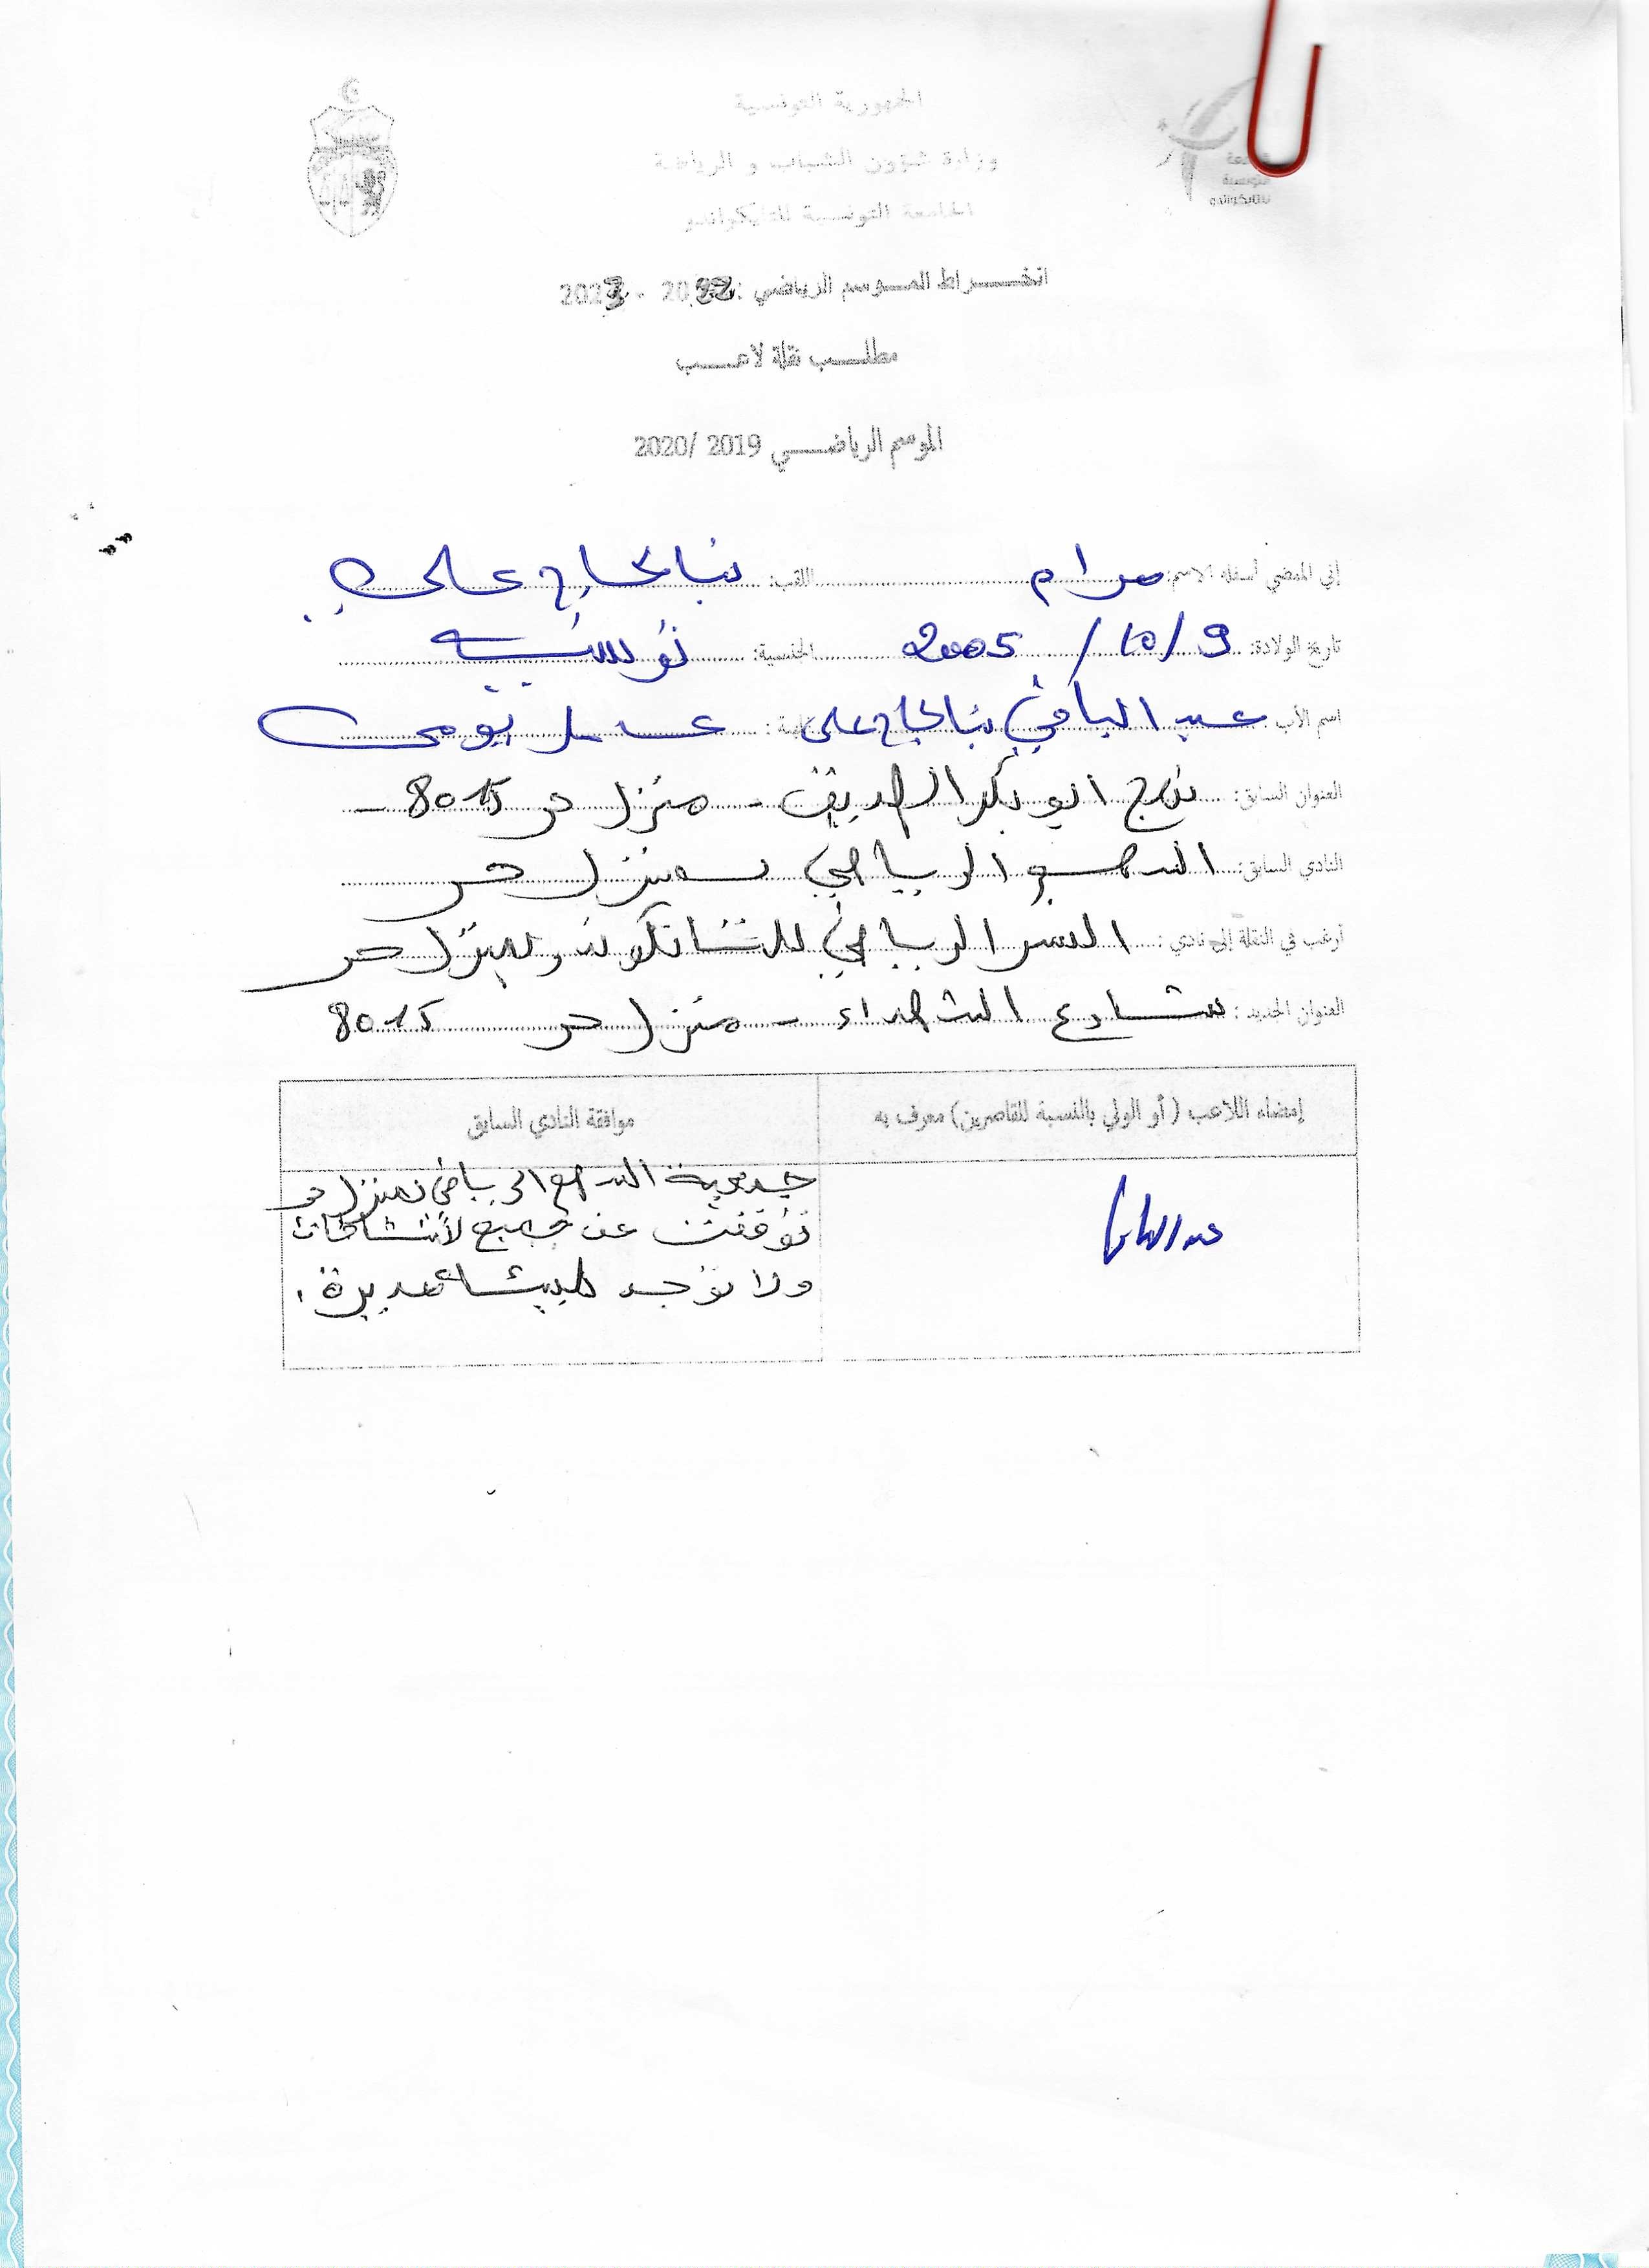 الجمهورية التونسية
وزارة شؤون الشباب و الرياضة
الجامعة التونسية للتايكواندو
التونسية
للتايكواندو
انخــراط الموسم الرياضي : 2022 - 2023
مطلــب نقلة لاعــب
الموسم الرياضــي 2019 /2020
إني الممضي أسفله الاسم: مرام اللقب: بنالحاج علي
تاريخ الولادة: 9/ 10/ 2005 الجنسية: تونسية
اسم الأب: عبد الباقي بنالحاج علي عامل يومي
العنوان السابق: نهج ابو بكر الصديق - منزل حر 8015 -
النادي السابق: الرياضي بمنزل حر
أرغب في النقلة إلى نادي: النسر الرياضي للتايكوندو بمنزل حر
العنوان الجديد: شارع الشهداء - منزل حر 8015
إمضاء اللاعب (أو الولي بالنسبة للقاصرين) معرف به
موافقة النادي السابق
جمعية الرياضي بمنزل حر
توقفت عن جميع النشاطات
ولا توجد مديرة .